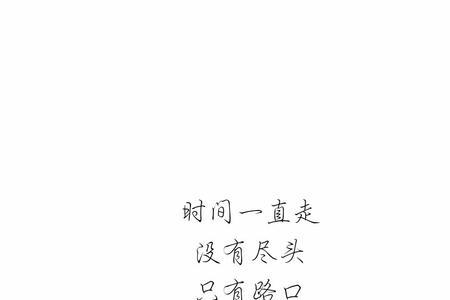 时间一直走
没有尽头
只有路口